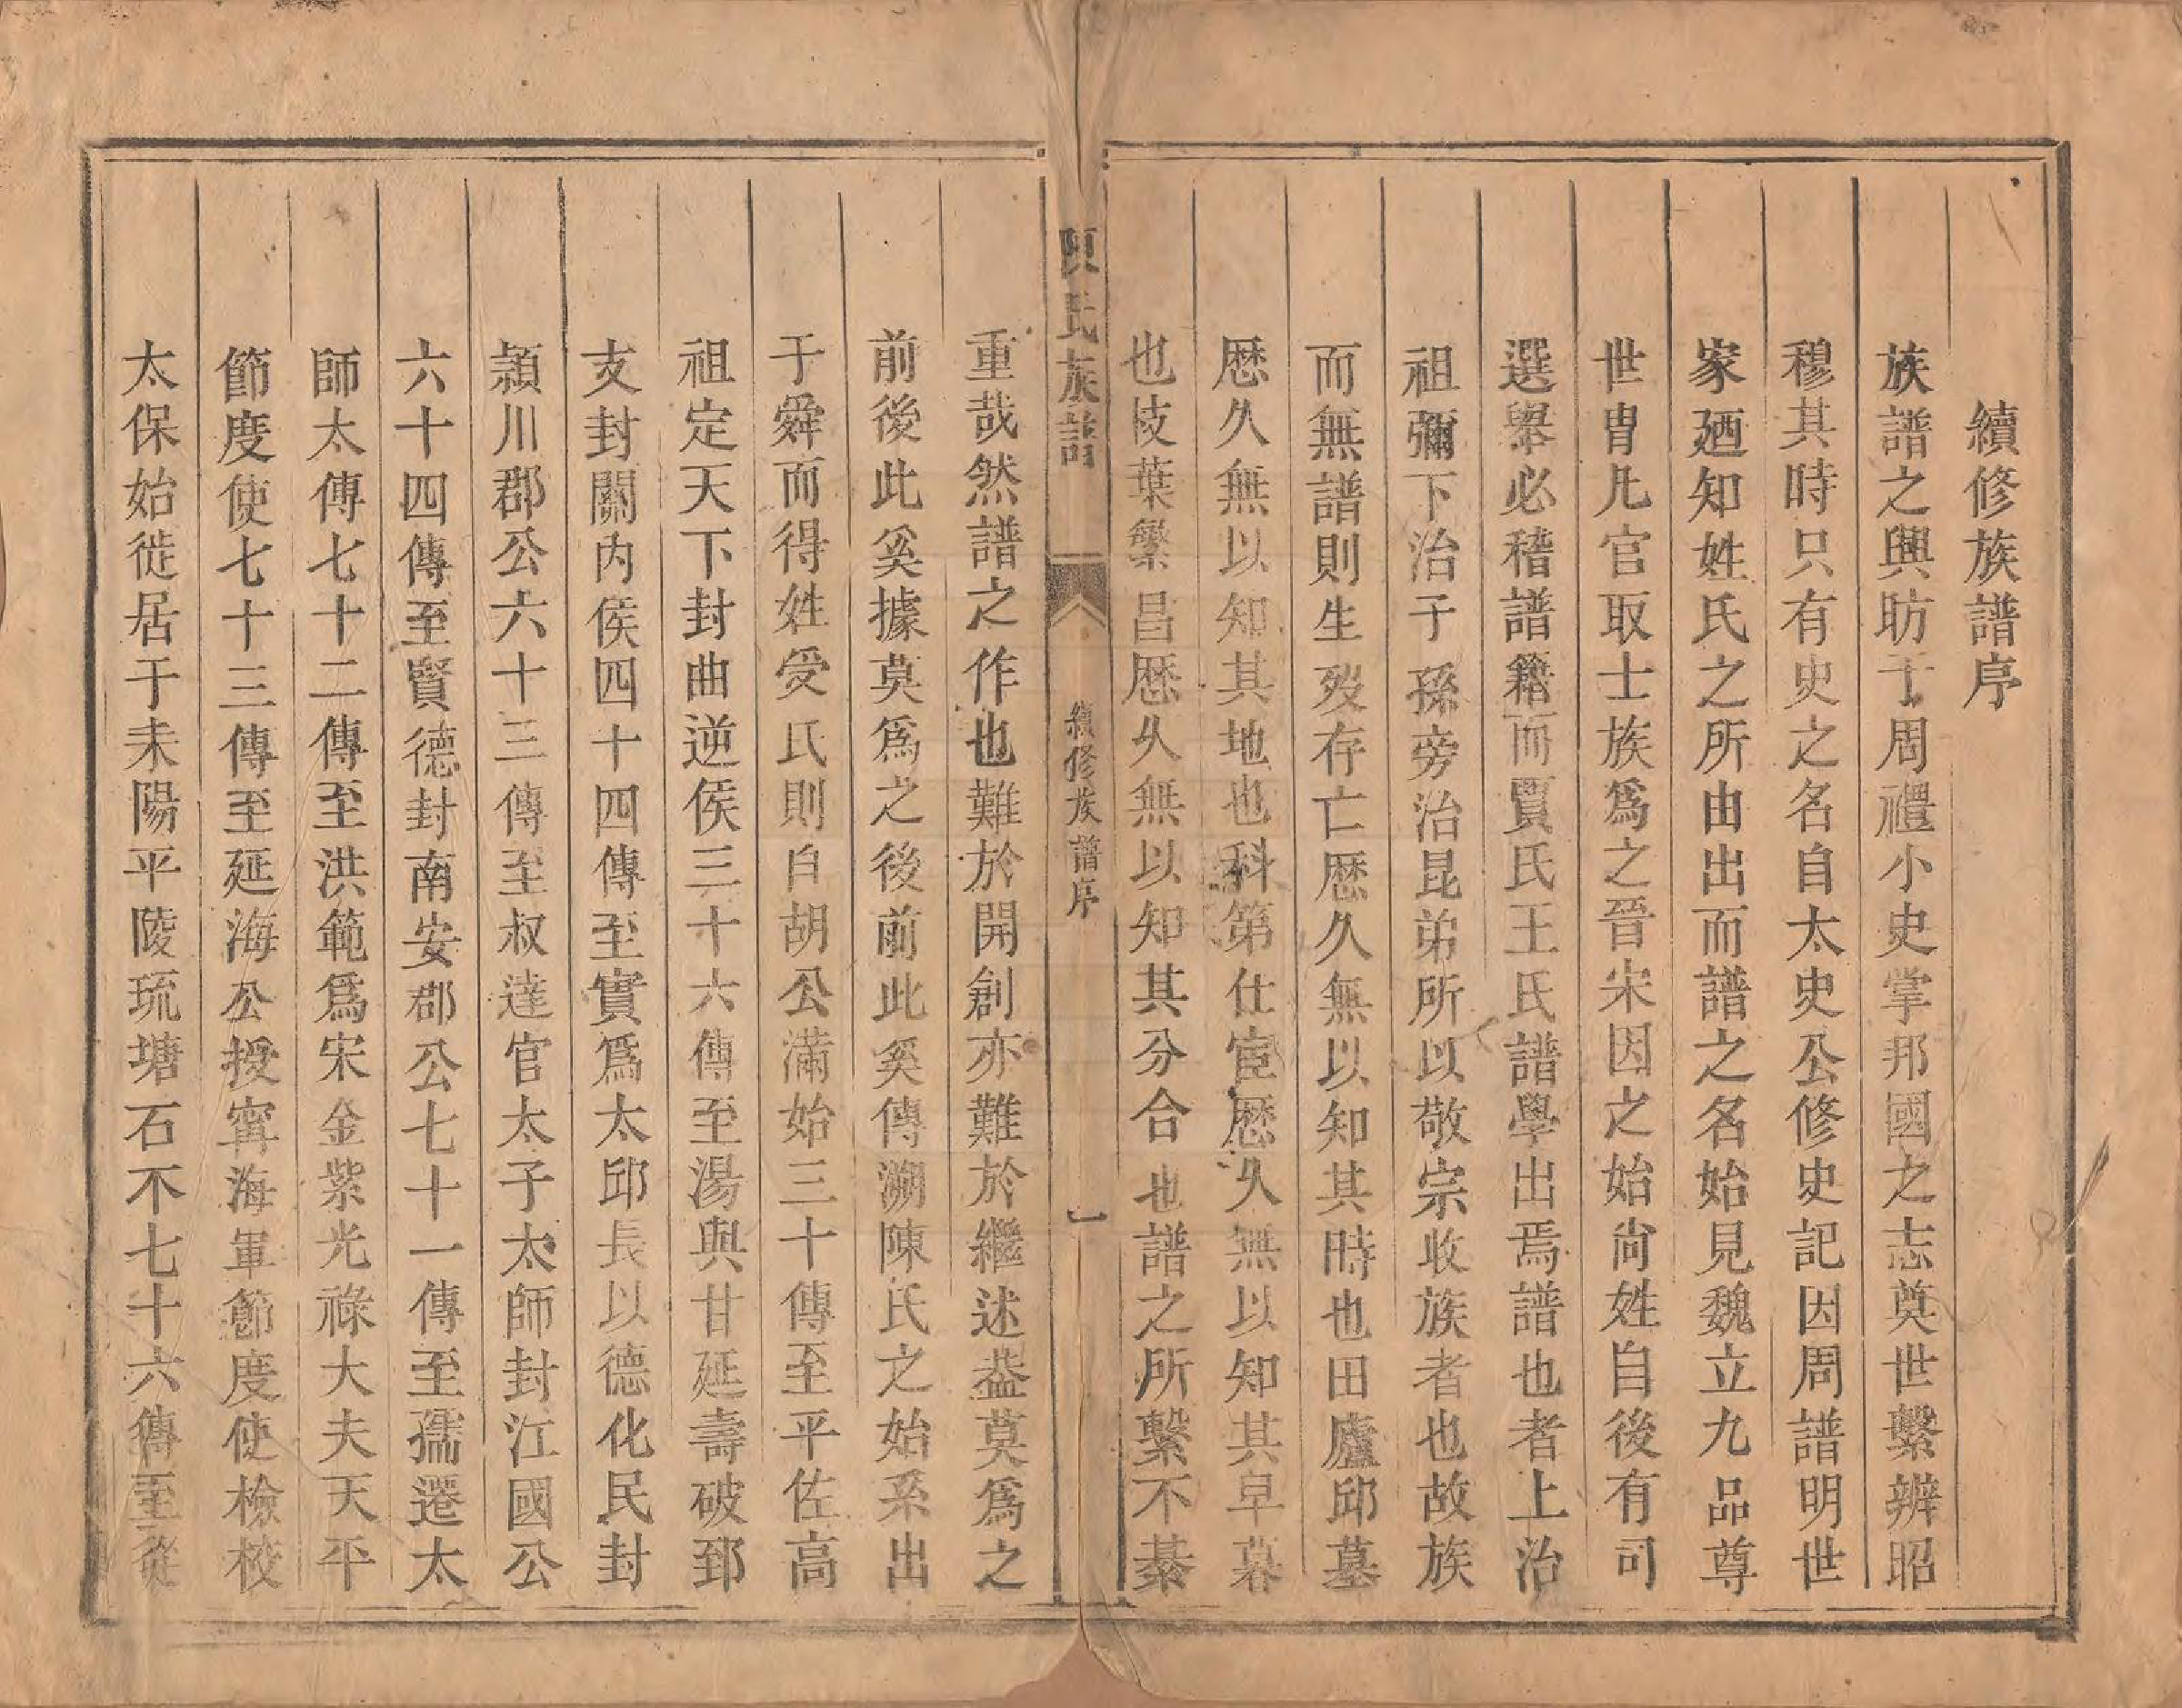 續修族譜序
族譜之興昉于周禮小史掌邦國之志奠世繫辨昭
穆其時只有史之名自太史公修史記因周譜明世
家廼知姓氏之所由出而譜之名始見魏立九品尊
世胄凡官取士族爲之晉宋因之始尙姓自後有司
選舉必稽譜籍而賈氏王氏譜學出焉譜也者上治
祖彌下治子孫旁治昆弟所以敬宗收族者也故族
而無譜則生歿存亡歴久無以知其時也田廬邱墓
歴久無以知其地也科第仕宦歴久無以知其皁暮
也枝葉繁昌歴久無以知其分合也譜之所繫不綦
陳氏族譜
續修族譜序
一
重哉然譜之作也難於開創亦難於繼述葢莫爲之
前後此奚據莫爲之後前此奚傳溯陳氏之始系出
于舜而得姓受氏則自胡公滿始三十傳至平佐高
祖定天下封曲逆侯三十六傳至湯與甘延壽破郅
支封關內侯四十四傳至實爲太邱長以德化民封
潁川郡公六十三傳至叔達官太子太師封江國公
六十四傳至賢德封南安郡公七十一傳至孺遷太
師太傅七十二傳至洪範爲宋金紫光祿大夫天平
節度使七十三傳至延海公授寗海軍節度使檢校
太保始徙居于耒陽平陵琉塘石不七十六傳至從